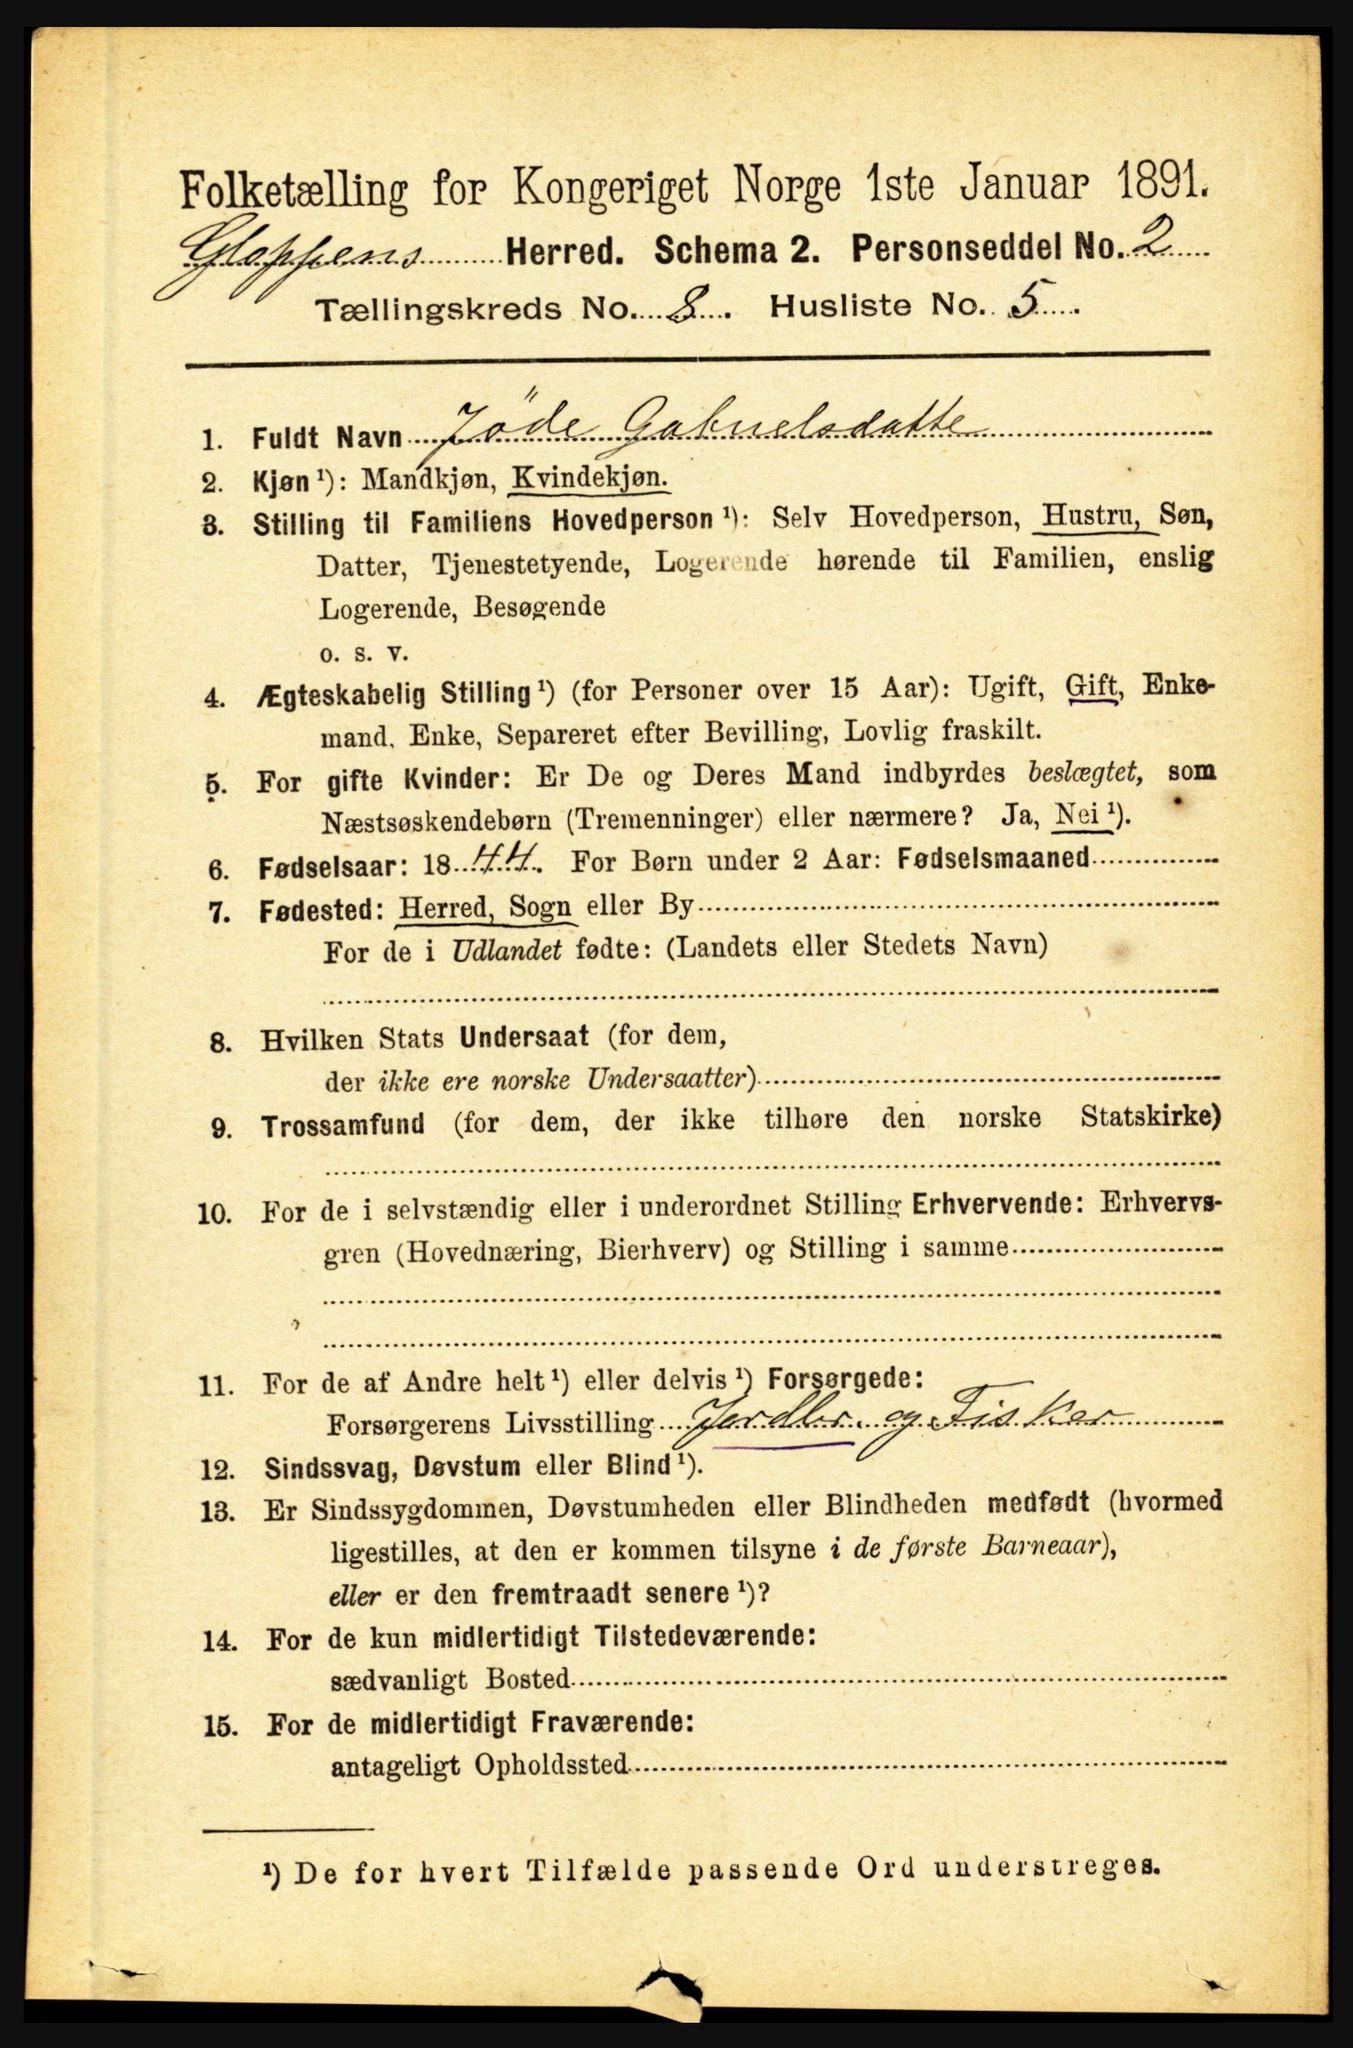 Folketælling for Kongeriget Norge 1ste Januar 1891.
Gloppens Herred. Schema 2. Personseddel No. 2
Tællingskreds No. 8. Husliste No. 5.
1. Fuldt Navn Jöde Gabrielsdatte
2. Kjøn ¹): Mandkjøn, Kvindekjøn.
3. Stilling til Familiens Hovedperson ¹): Selv Hovedperson, Hustru, Søn,
Datter, Tjenestetyende, Logerende hørende til Familien, enslig
Logerende, Besøgende
o. s. v.
4. Ægteskabelig Stilling ¹) (for Personer over 15 Aar): Ugift, Gift, Enke-
mand, Enke, Separeret efter Bevilling, Lovlig fraskilt.
5. For gifte Kvinder: Er De og Deres Mand indbyrdes beslægtet, som
Næstsøskendebørn (Tremenninger) eller nærmere? Ja, Nei ¹).
6. Fødselsaar: 1844. For Børn under 2 Aar: Fødselsmaaned
7. Fødested: Herred, Sogn eller By
For de i Udlandet fødte: (Landets eller Stedets Navn)
8. Hvilken Stats Undersaat (for dem,
der ikke ere norske Undersaatter)
9. Trossamfund (for dem, der ikke tilhøre den norske Statskirke)
10. For de i selvstændig eller i underordnet Stilling Erhvervende: Erhvervs-
gren (Hovednæring, Bierhverv) og Stilling i samme
11. For de af Andre helt ¹) eller delvis ¹) Forsørgede:
Forsørgerens Livsstilling Jordbr. og Fisker
12. Sindssvag, Døvstum eller Blind ¹).
13. Er Sindssygdommen, Døvstumheden eller Blindheden medfødt (hvormed
ligestilles, at den er kommen tilsyne i de første Barneaar),
eller er den fremtraadt senere ¹)?
14. For de kun midlertidigt Tilstedeværende:
sædvanligt Bosted
15. For de midlertidigt Fraværende:
antageligt Opholdssted
¹) De for hvert Tilfælde passende Ord understreges.